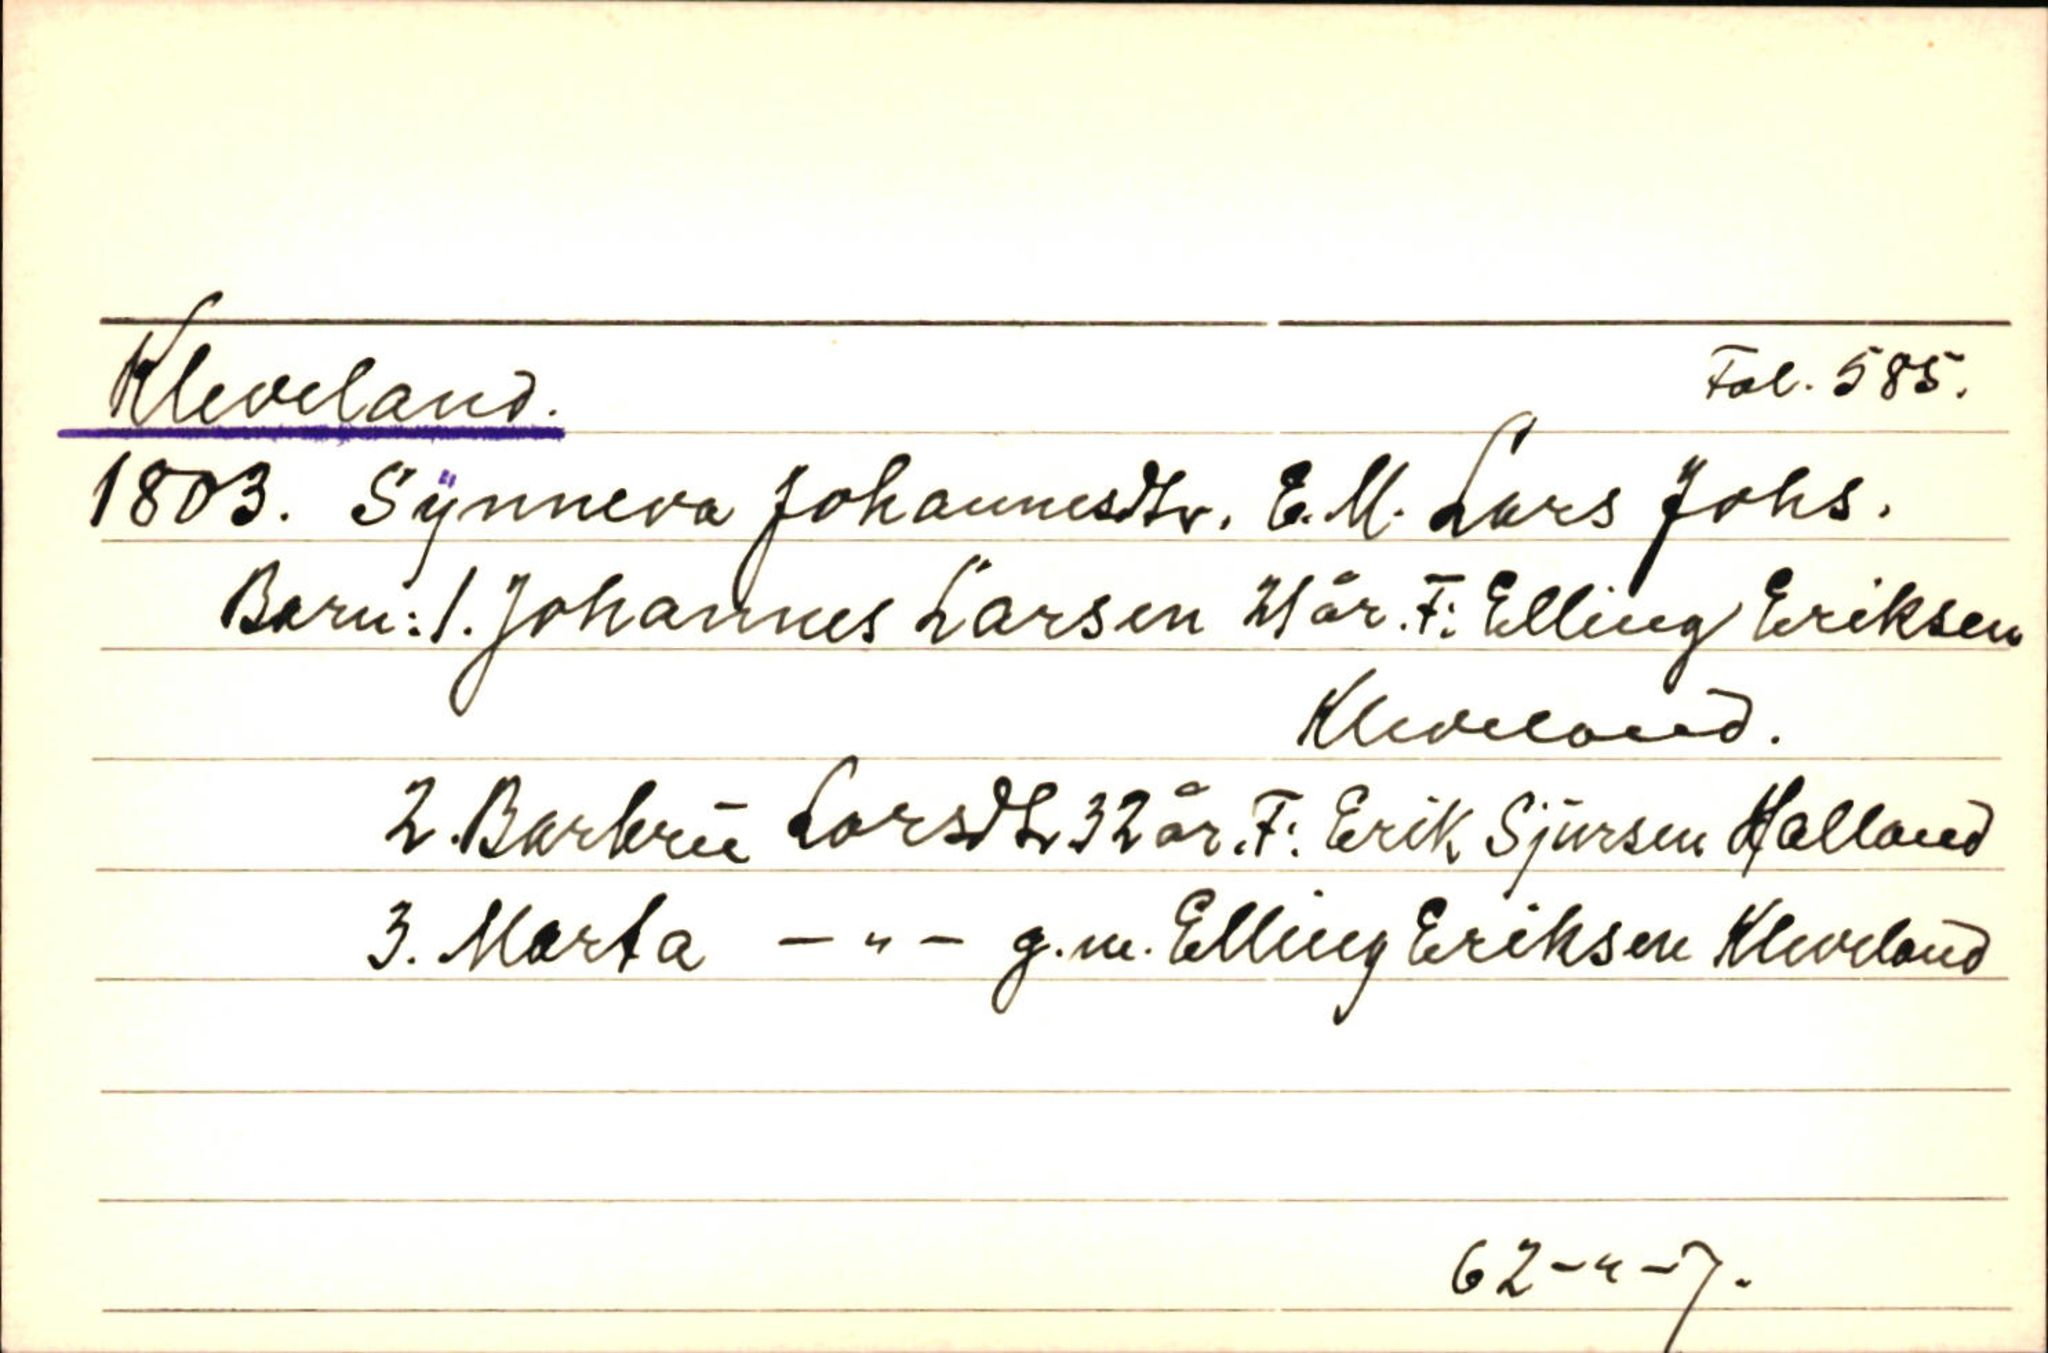 Kleveland. Fol. 585.
1803. Synneva Johannesdtr. E.M. Lars Johs.
Barn: 1. Johannes Larsen 21 år. F: Elling Eriksen
Kleveland.
2. Barbru Larsdtr 32 år. F: Erik Sjursen Halland
3. Marta — " — g.m. Elling Eriksen Kleveland
62 - " - 7.